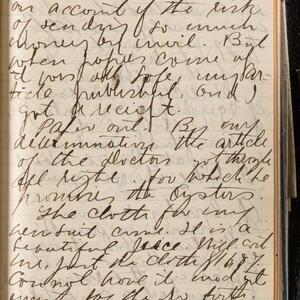 on account of the risk
of sending so much
money by mail. But
when papers come of
it was all safe, my ar-
ticle published and I
got a reciept.
Paper out. By my
determination the article
of the doctors got through
all right. for which he
promises the oysters.
The cloth for my
new suit came. It is a
beautiful piece. Will cost
me, just the cloth $6.87.
Can not have it made at